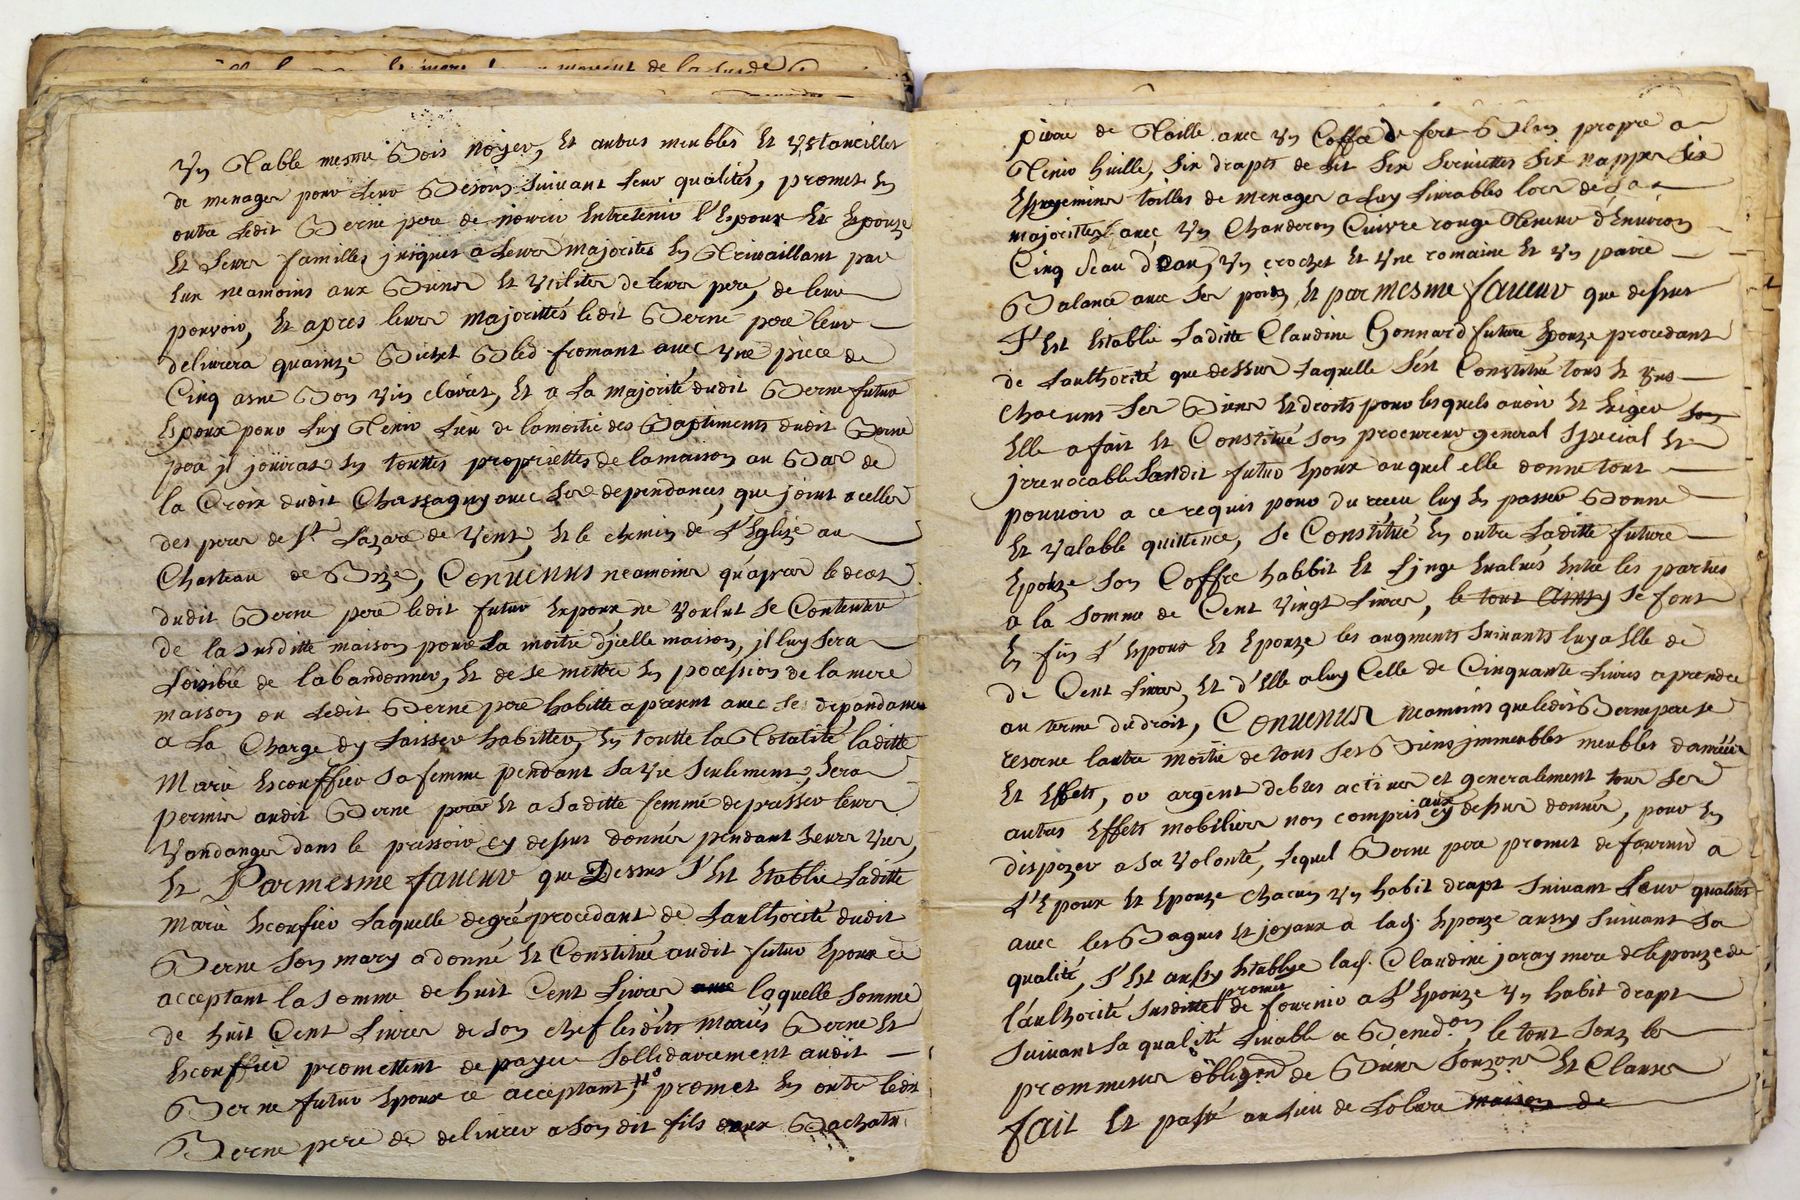 Un Table mesme Bois Noyer, Et autres meubles Et Ustancilles
de menager pour Leur Besoins Suivant Leur qualités, promet En
outre Ledit Berne pere de nourir Entretenir l'Epoux Et Epouze
Et Leurs familles jusques a Leurs Majorités En Trivaillant par
Eux neamoins aux Biens Et Utilités de leurs pere, de leur
pouvoir, Et apres leurs Majorittés ledit Berne pere leur
delivrera quainze Bichet Bled fromant avec Une piece de
Cinq asne Bon Vin clairet, Et a La Majorité dudit Berne futur
Epoux pour Luy Tenir Lieu de lamoitié des Baptiments dudit Berne
pere jl jouiras En touttes propriettes de lamaison au Bas de
la Croix dudit Chassagny avec Ses dependances, que joint a celles
des peres de St Lazare de Vent, Et le chemin de L'Eglize au
Chasteau de , Convenus neamoins qu'apres le deces
dudit Berne pere ledit futur Expoux, ne Voulut Se Contenter
de la Susditte maison pour La moitié d'jcelle maison, jl luy Sera
Loisible de labandonner, Et de se mettre En pocession de la mere
maison ou Ledit Berne pere habitte apresent avec Ses dépandances
a La Charge dy Laisser habitter, En toutte la Totalité laditte
Marie Escoffier Sa femme pendant Sa vie Seulement, Sera
permis audit Berne pere Et a Saditte femme de presser leurs
Vandanges dans le pressoir cy dessus donnés pendant Leurs Vies,
Et Parmesme faveur que Dessus S'Est Etablie Laditte
Marie Escoffier Laquelle degré procedant de Lauthorité dudit
Berne Son mary a donné Et Constitué audit futur Epoux ce
acceptant la Somme de huit Cent Livres laquelle Somme
de huit Cent Livres de Son chef lesdits Mariés Berne Et
Escoffier promettent de payer Sollidairement audit
Berne futur Epoux ce acceptant, promet En outre ledit
Berne pere de delivrer a Son dit fils deux Bachats
pierre de Taille avec Un Coffre de fert Blan propre a
Tenir huille, Six drapts de Lit Six Serviettes Six nappes Six
Essuyemins toilles de menages a Luy Livrables lors de Sa
majorittez avec Un Chauderon Cuivre rouge Teneur d'Environ
Cinq Seau d'Eau, Un crochet Et Une romaine Et Un paire
Balance avec Ses poids, Et par mesme faveur que dessus
S'Est Etablie Laditte Claudine Gonnard future Epouze procedant
de Lauthorité que dessus Laquelle S'est Constitué tous Et Uns
chacuns Ses Biens Et droits pour lesquels avoir Et Exiger
Elle a fait Et Constitué Son procureur general Special Et
jrrevocable Ledit futur Epoux auquel elle donne tout
pouvoir a ce requis pour du receu luy En passer Bonne
Et Valable quittence, Se Constitué En outre Laditte future
Epouze Son Coffre habbit Et Linge Evalués Entre les parties
a la Somme de Cent Vingt Livres, le tout Ainsy Se font
En fin L'Epoux Et Epouze les augments Suivants luy a Elle de
de Cent Livres, Et d'Elle a luy Celle de Cinquante Livres aprendre
au terme du droit, Convenus neamoins que ledit Berne pere se
reserve lautre moitié de tous Ses Biens jmmeubles meubles danrées
Et Effets, or argent debtes actives et generalement tous Ses
autres Effets mobiliers non compris aux cy dessus donnés, pour En
dispozer a Sa Volonté, Lequel Berne pere promet de fournir a
L'Epoux Et Epouze chacun Un habit drapt Suivant Leur qualités
avec les Bagues Et joyaux a lad. Epouze aussy Suivant Sa
qualité, S'Est aussy Etablye lad. Claudine jaray mere de lepouze de
l'authorité Susditte promet de fournir a L'Epouze Un habit drapt
Suivant Sa qualité Livrable a Bened.on le tout Souz les
prommesses obligon de Biens Et Clauses
fait Et passé au Lieu de Lolure maison de